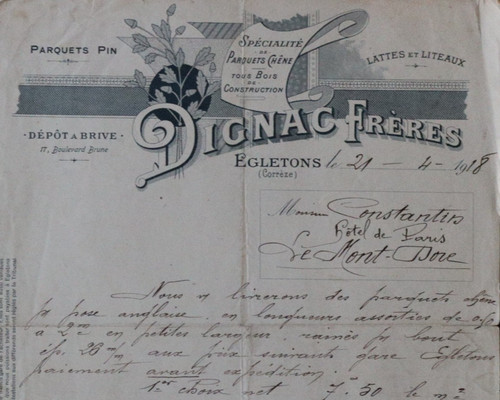 PARQUETS PIN
SPÉCIALITÉ
DE
PARQUETS CHÊNE
TOUS BOIS
DE
CONSTRUCTION
LATTES ET LITEAUX
DÉPÔT A BRIVE
17, Boulevard Brune
DIGNAC FRÈRES
EGLETONS le 21 - 4 - 1918
(Corrèze)
Monsieur Constantin
Hôtel de Paris
Le Mont-Dore
Nous livrerons des parquets
pose anglaise en longueurs assorties de
à 2m en petites largeur, rainés bout
ép. 23 m/m aux prix suivants gare Egletons
paiement avant expédition.
1er choix net 7.50 le m2